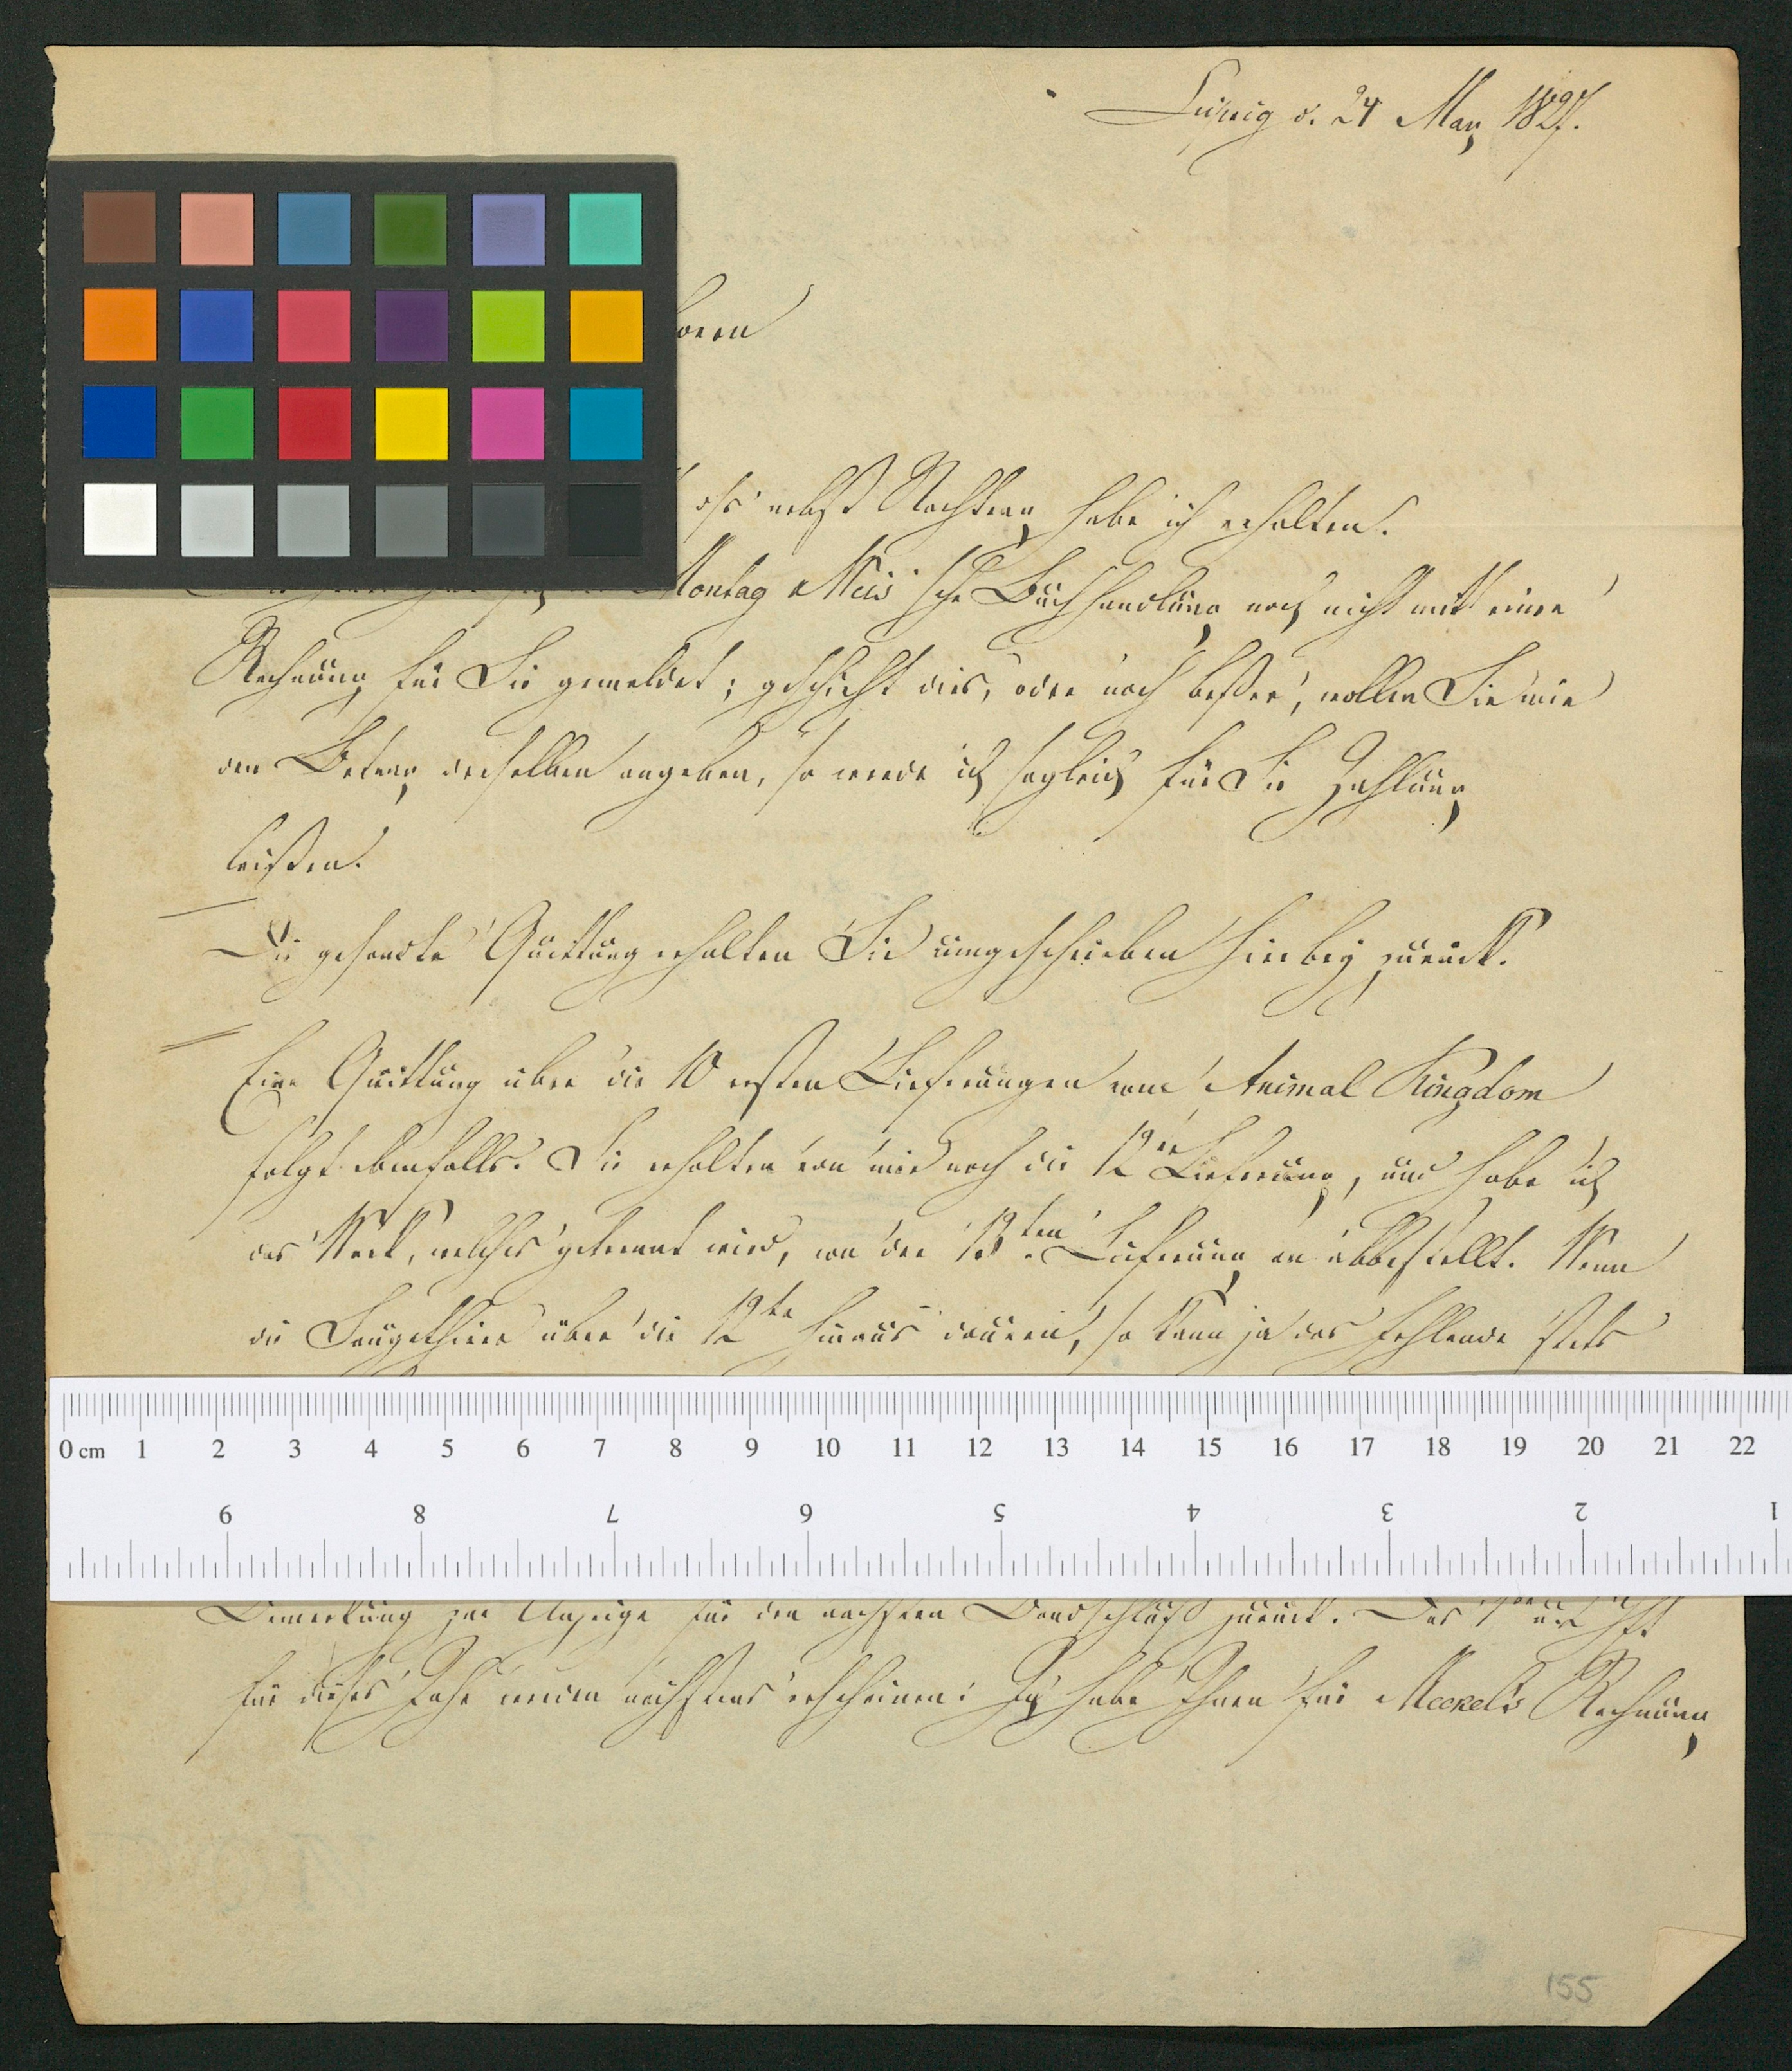 Leipzig d. 24 May 1827.
nebst Nachtrag habe ich erhalten.
Montag & Weis'sche Buchhandlung noch nicht mit einer
Rechnung für Sie gemeldet; geschieht dies, oder noch beßer, wollen Sie mir
den Betrag derselben angeben, so werde ich sogleich für Sie Zahlung
leisten.
Die gesandte Quittung erhalten Sie umgeschrieben hierbey zurück.
Eine Quittung über die 10 ersten Lieferungen vom Animal Kingdom
folgt ebenfalls. Sie erhalten von mir noch die 12te Lieferung, und habe ich
das Werk, welches getrennt wird, von der 13ten Lieferung an abbestellt. Wenn
die Säugethiere über die 12te hinaus dauern, so kann ja das Fehlende stets
0 cm 1 2 3 4 5 6 7 8 9 10 11 12 13 14 15 16 17 18 19 20 21 22
9 8 7 6 5 4 3 2 1
Bemerkung zur Anzeige für den nächsten Bandschluß zurück. Das
für dieses Jahr werden nächstens erscheinen: Ich habe Ihnen für Meckel's Rechnung
155